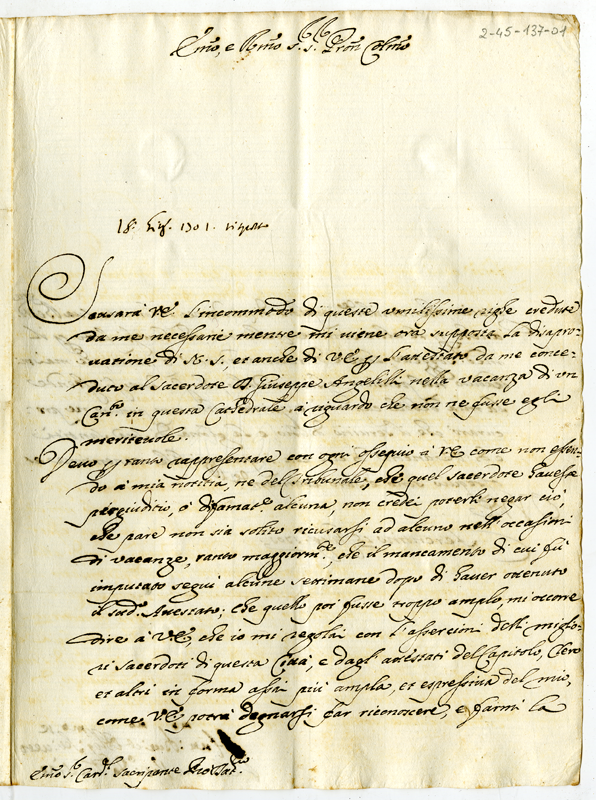 2-45-137-01
Emo, e Rmo S.r S.r Pron Colmo
18:
Scusarà V.E. l'incommodo di queste umilissime righe credute
da me necessarie mentre mi viene ora supposta la disapro-
vatione di N.S., et anche di V.E. p l'attestato da me conce-
duto al sacerdote D. Giuseppe Angelilli nella vacanza di un
Can.to in questa Cathedrale a riguardo che non ne fusse egli
meritevole.
Devo p tanto rappresentare con ogni ossequio à V.E. come non essen-
do à mia notitia, ne del Tribunale, che quel sacerdote havesse
pregiuditio, ò difamat.e alcuna, non credei poterle negar ciò,
che pare non sia solito ricusarsi ad alcuno nell'occasioni
di vacanze, tanto maggiorm.te, che il mancamento di cui fù
imputato seguì alcune settimane dopo di haver ottenuto
il sud.o Attestato; che quello poi fusse troppo amplo, mi occorre
dire à V.E., che io mi regolai con l'assertioni delli miglio-
ri sacerdoti di questa Città, e dagl'attestati del Capitolo, Clero
et altri in forma assai più ampla, et espressiva del mio,
come V.E. potrà degnarsi far riconoscere, e farmi la
Emo S.r Card.l Sacripante